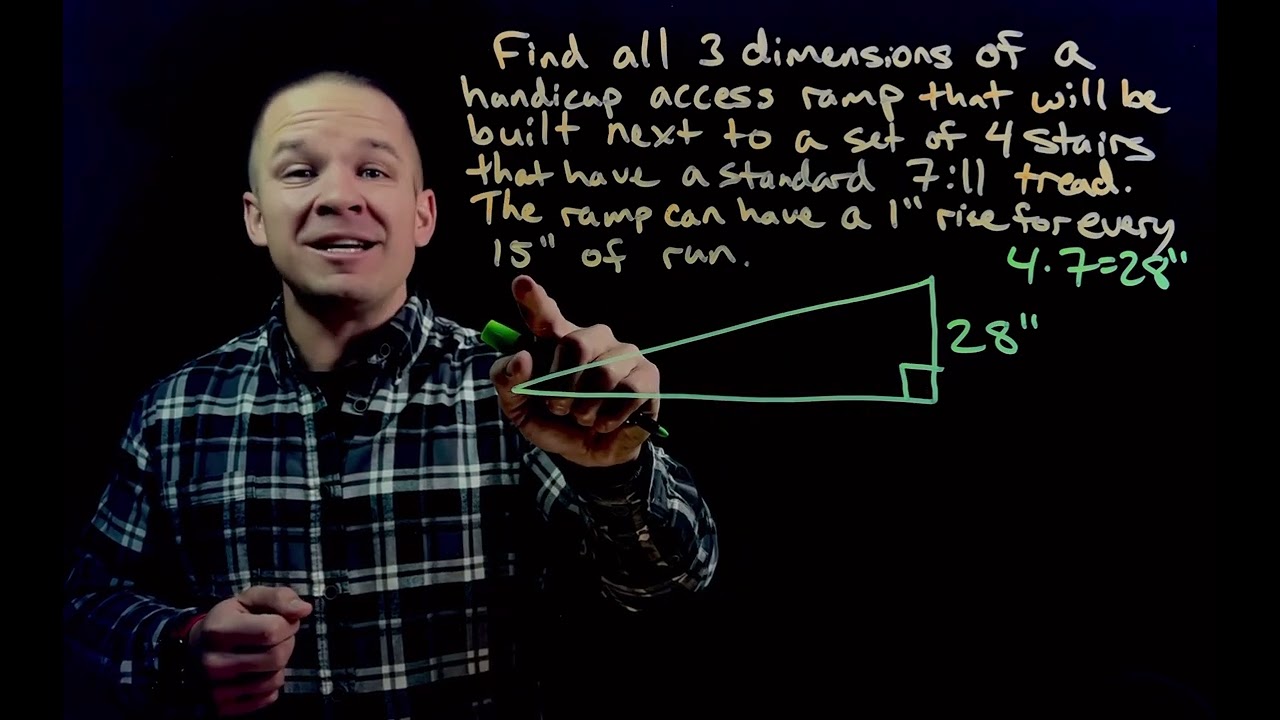 Find all 3 dimensions of a
handicap access ramp that will be
built next to a set of 4 stairs
that have a standard 7:11 tread.
The ramp can have a 1" rise for every
15" of run.
4·7=28"
28"